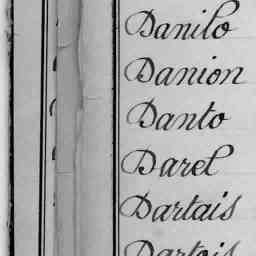 Danilo
Danion
Danto
Darel
Dartais
Dartois